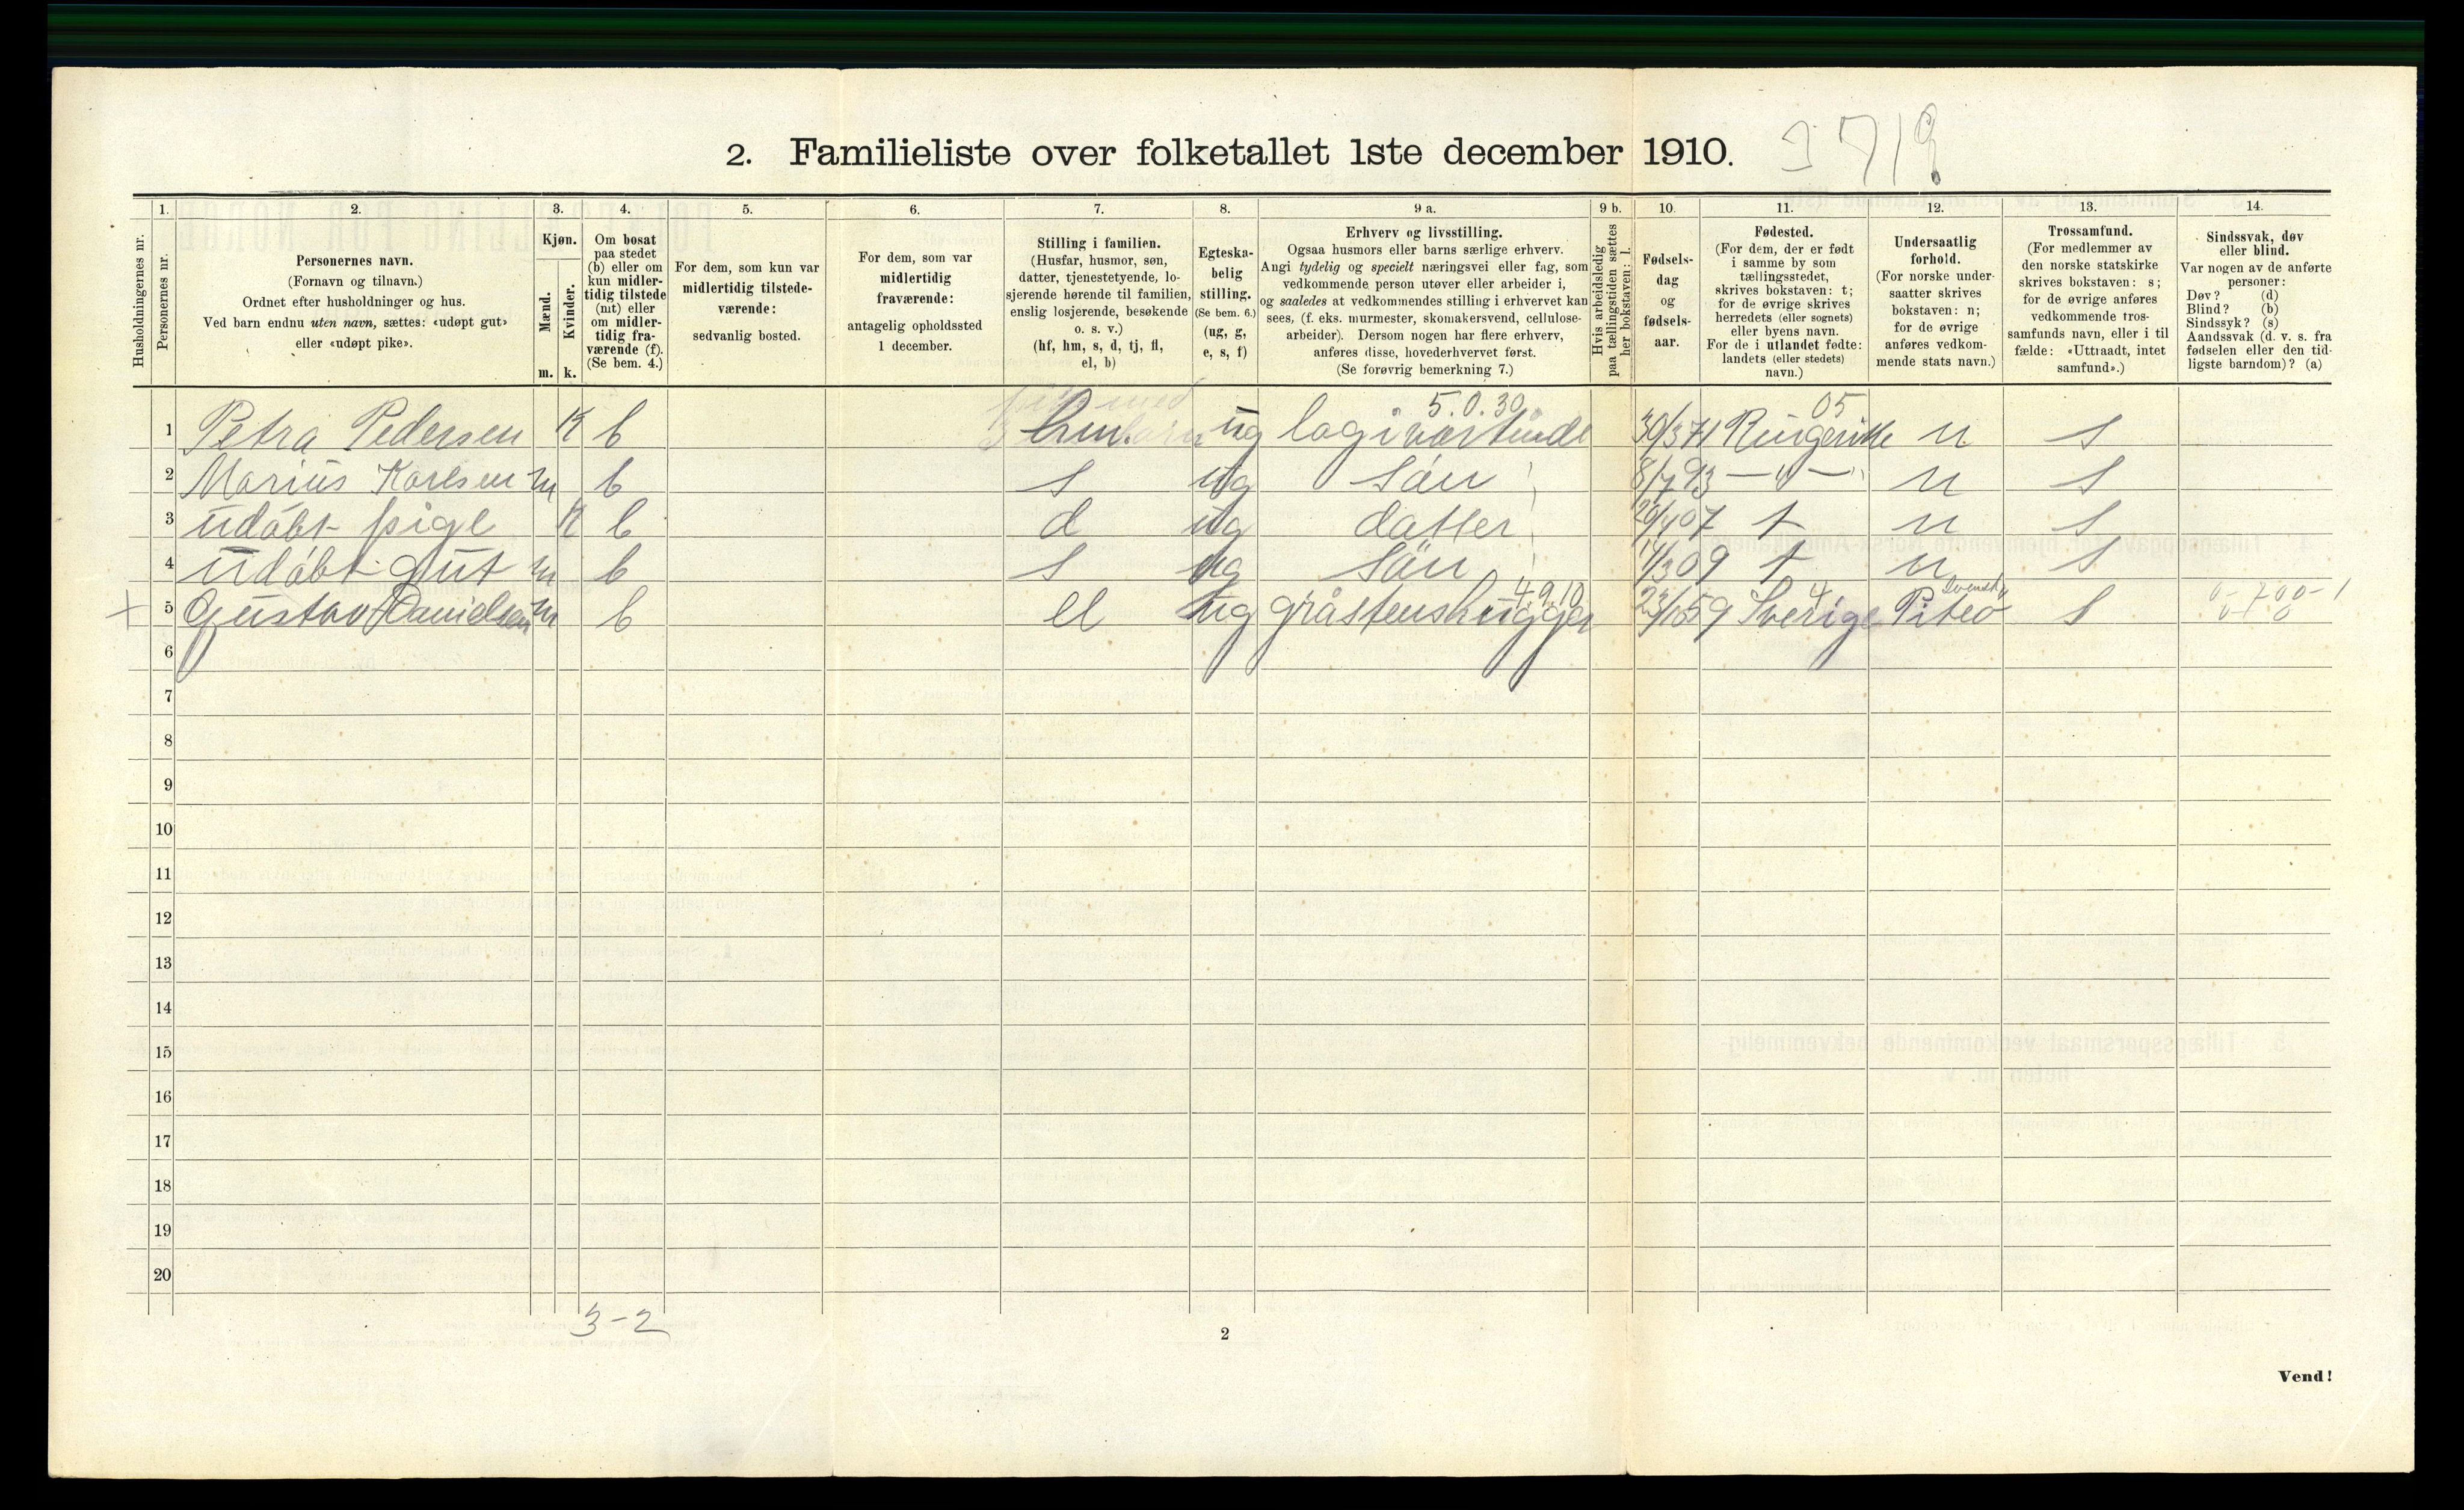 2. Familieliste over folketallet 1ste december 1910.
Husholdningernes nr.
1.
Personernes nr.
2.
Personernes navn.
(Fornavn og tilnavn.)
Ordnet efter husholdninger og hus.
Ved barn endnu uten navn, sættes: «udøpt gut»
eller «udøpt pike».
3.
Kjøn.
Mænd.
Kvinder.
m. k.
4.
Om bosat
paa stedet
(b) eller om
kun midler-
tidig tilstede
(mt) eller
om midler-
tidig fra-
værende (f).
(Se bem. 4.)
5.
For dem, som kun var
midlertidig tilstede-
værende:
sedvanlig bosted.
6.
For dem, som var
midlertidig
fraværende:
antagelig opholdssted
1 december.
7.
Stilling i familien.
(Husfar, husmor, søn,
datter, tjenestetyende, lo-
sjerende hørende til familien,
enslig losjerende, besøkende
o. s. v.)
(hf, hm, s, d, tj, fl,
el, b)
8.
Egteska-
belig
stilling.
(Se bem. 6.)
(ug, g,
e, s, f)
9 a.
Erhverv og livsstilling.
Ogsaa husmors eller barns særlige erhverv.
Angi tydelig og specielt næringsvei eller fag, som
vedkommende person utøver eller arbeider i,
og saaledes at vedkommendes stilling i erhvervet kan
sees, (f. eks. murmester, skomakersvend, cellulose-
arbeider). Dersom nogen har flere erhverv,
anføres disse, hovederhvervet først.
(Se forøvrig bemerkning 7.)
9 b.
Hvis arbeidsledig
paa tællingstiden sættes
her bokstaven: l.
10.
Fødsels-
dag
og
fødsels-
aar.
11.
Fødested.
(For dem, der er født
i samme by som
tællingsstedet,
skrives bokstaven: t;
for de øvrige skrives
herredets (eller sognets)
eller byens navn.
For de i utlandet fødte:
landets (eller stedets)
navn.)
12.
Undersaatlig
forhold.
(For norske under-
saatter skrives
bokstaven: n;
for de øvrige
anføres vedkom-
mende stats navn.)
13.
Trossamfund.
(For medlemmer av
den norske statskirke
skrives bokstaven: s;
for de øvrige anføres
vedkommende tros-
samfunds navn, eller i til
fælde: «Uttraadt, intet
samfund».)
14.
Sindssvak, døv
eller blind.
Var nogen av de anførte
personer:
Døv? (d)
Blind? (b)
Sindssyk? (s)
Aandssvak (d. v. s. fra
fødselen eller den tid-
ligste barndom)? (a)
5.0.30 05
1 Petra Pedersen K b hm. ug logivärtinde 30/3 71 Ringerike n s
2 Marius Karlsen m b s ug sön 8/7 93 — " — n s
3 udöbt pige K b d ug datter 20/4 07 t n s
4 udöbt gut m b s ug sön 14/3 09 t n s
4.9.10 4 Svensk
x 5 Gustav Danielsen m b el ug gråstenshugger 59 Sverige Piteo s
6
7
8
9
10
11
12
13
14
15
16
17
18
19
20
3-2
2
Vend!